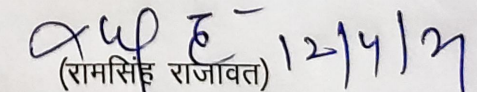 12/4/21
(रामसिंह राजावत)